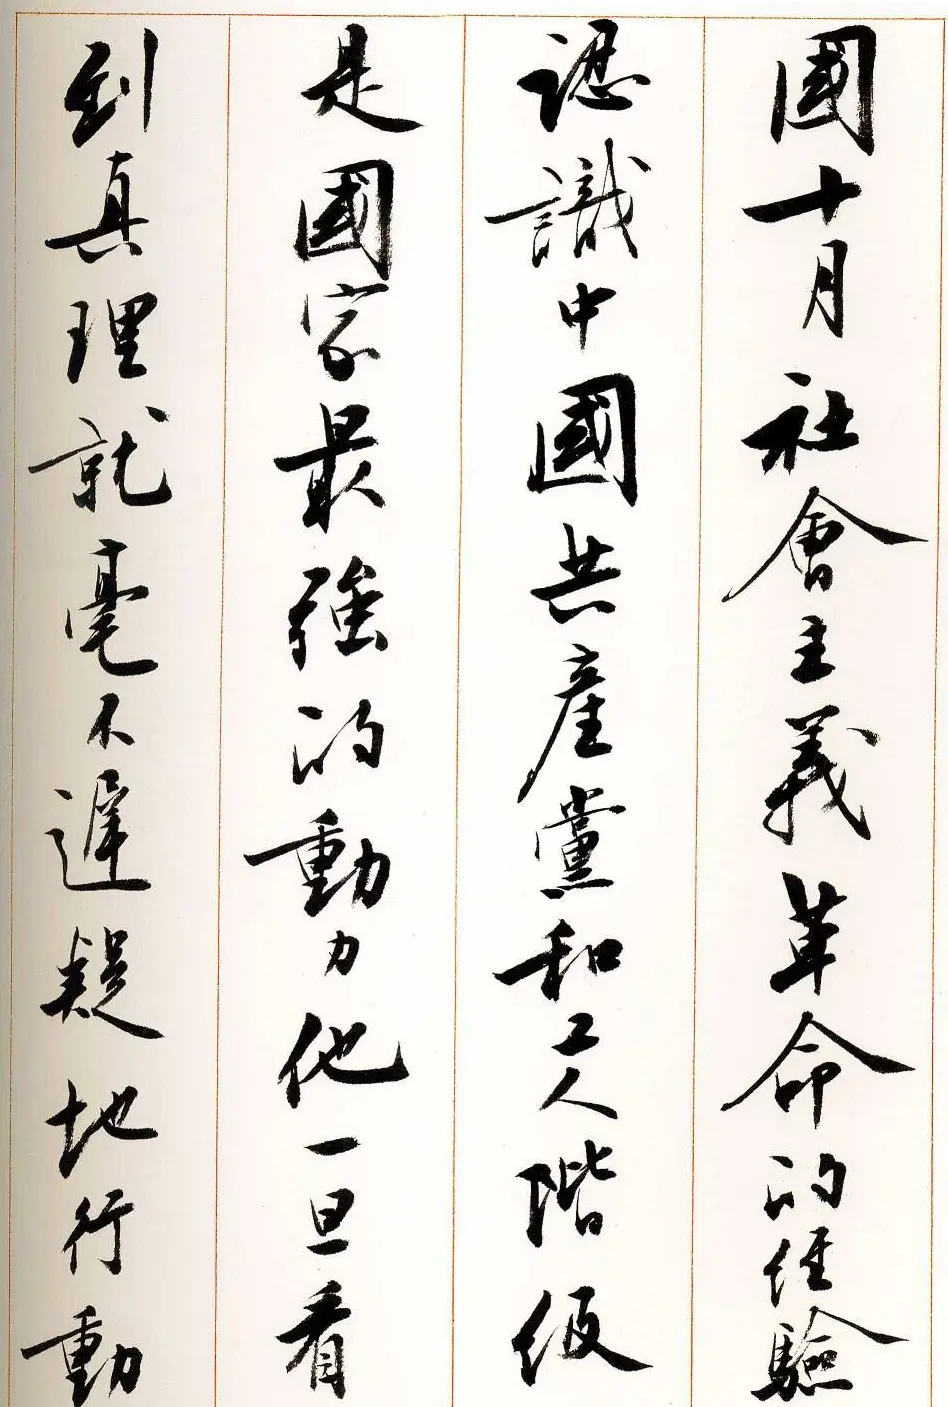 國十月社會主義革命的經驗
認識中國共產黨和工人階級
是國家最強的動力他一旦看
到真理就毫不遲疑地行動